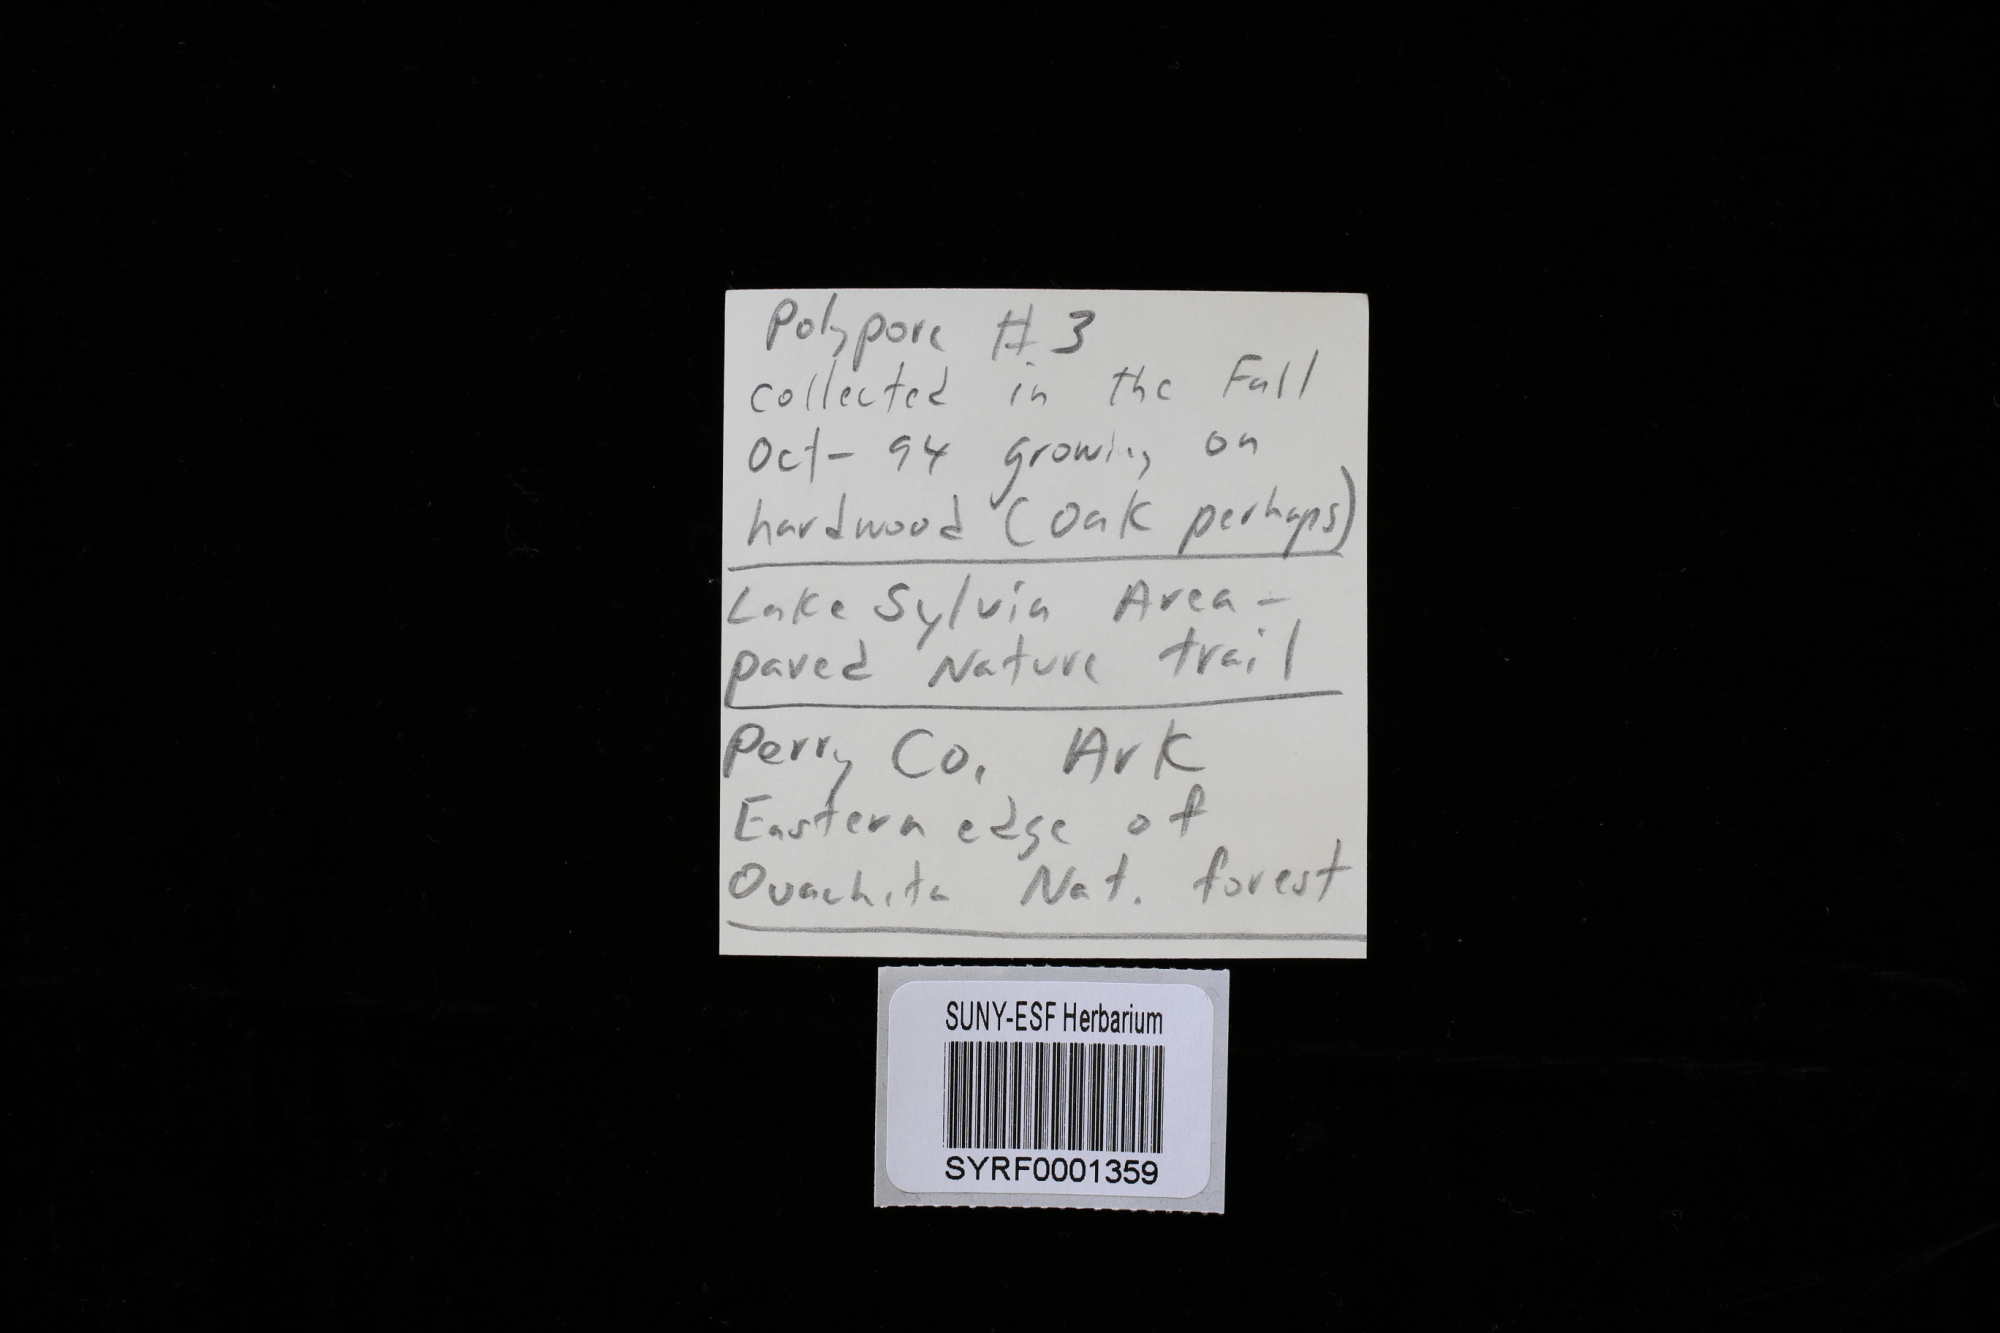 Polypore #3
collected in the Fall
Oct- 94 growing on
hardwood (Oak perhaps)
Lake Sylvia Area -
paved Nature trail
Perry Co. Ark
Eastern edge of
Ouachita Nat. forest
SUNY-ESF Herbarium
SYRF0001359